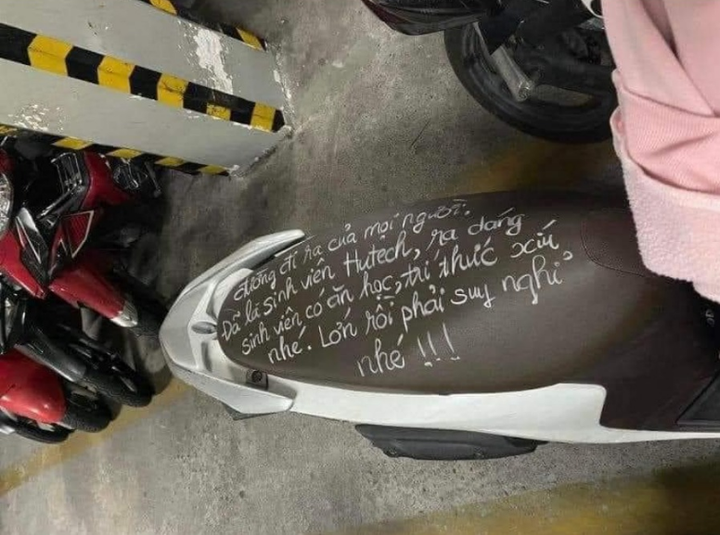 đường đi ra của mọi người.
Đã là sinh viên Hutech, ra dáng
sinh viên có ăn học, tri thức xíu
nhé. Lớn rồi phải suy nghĩ
nhé !!!